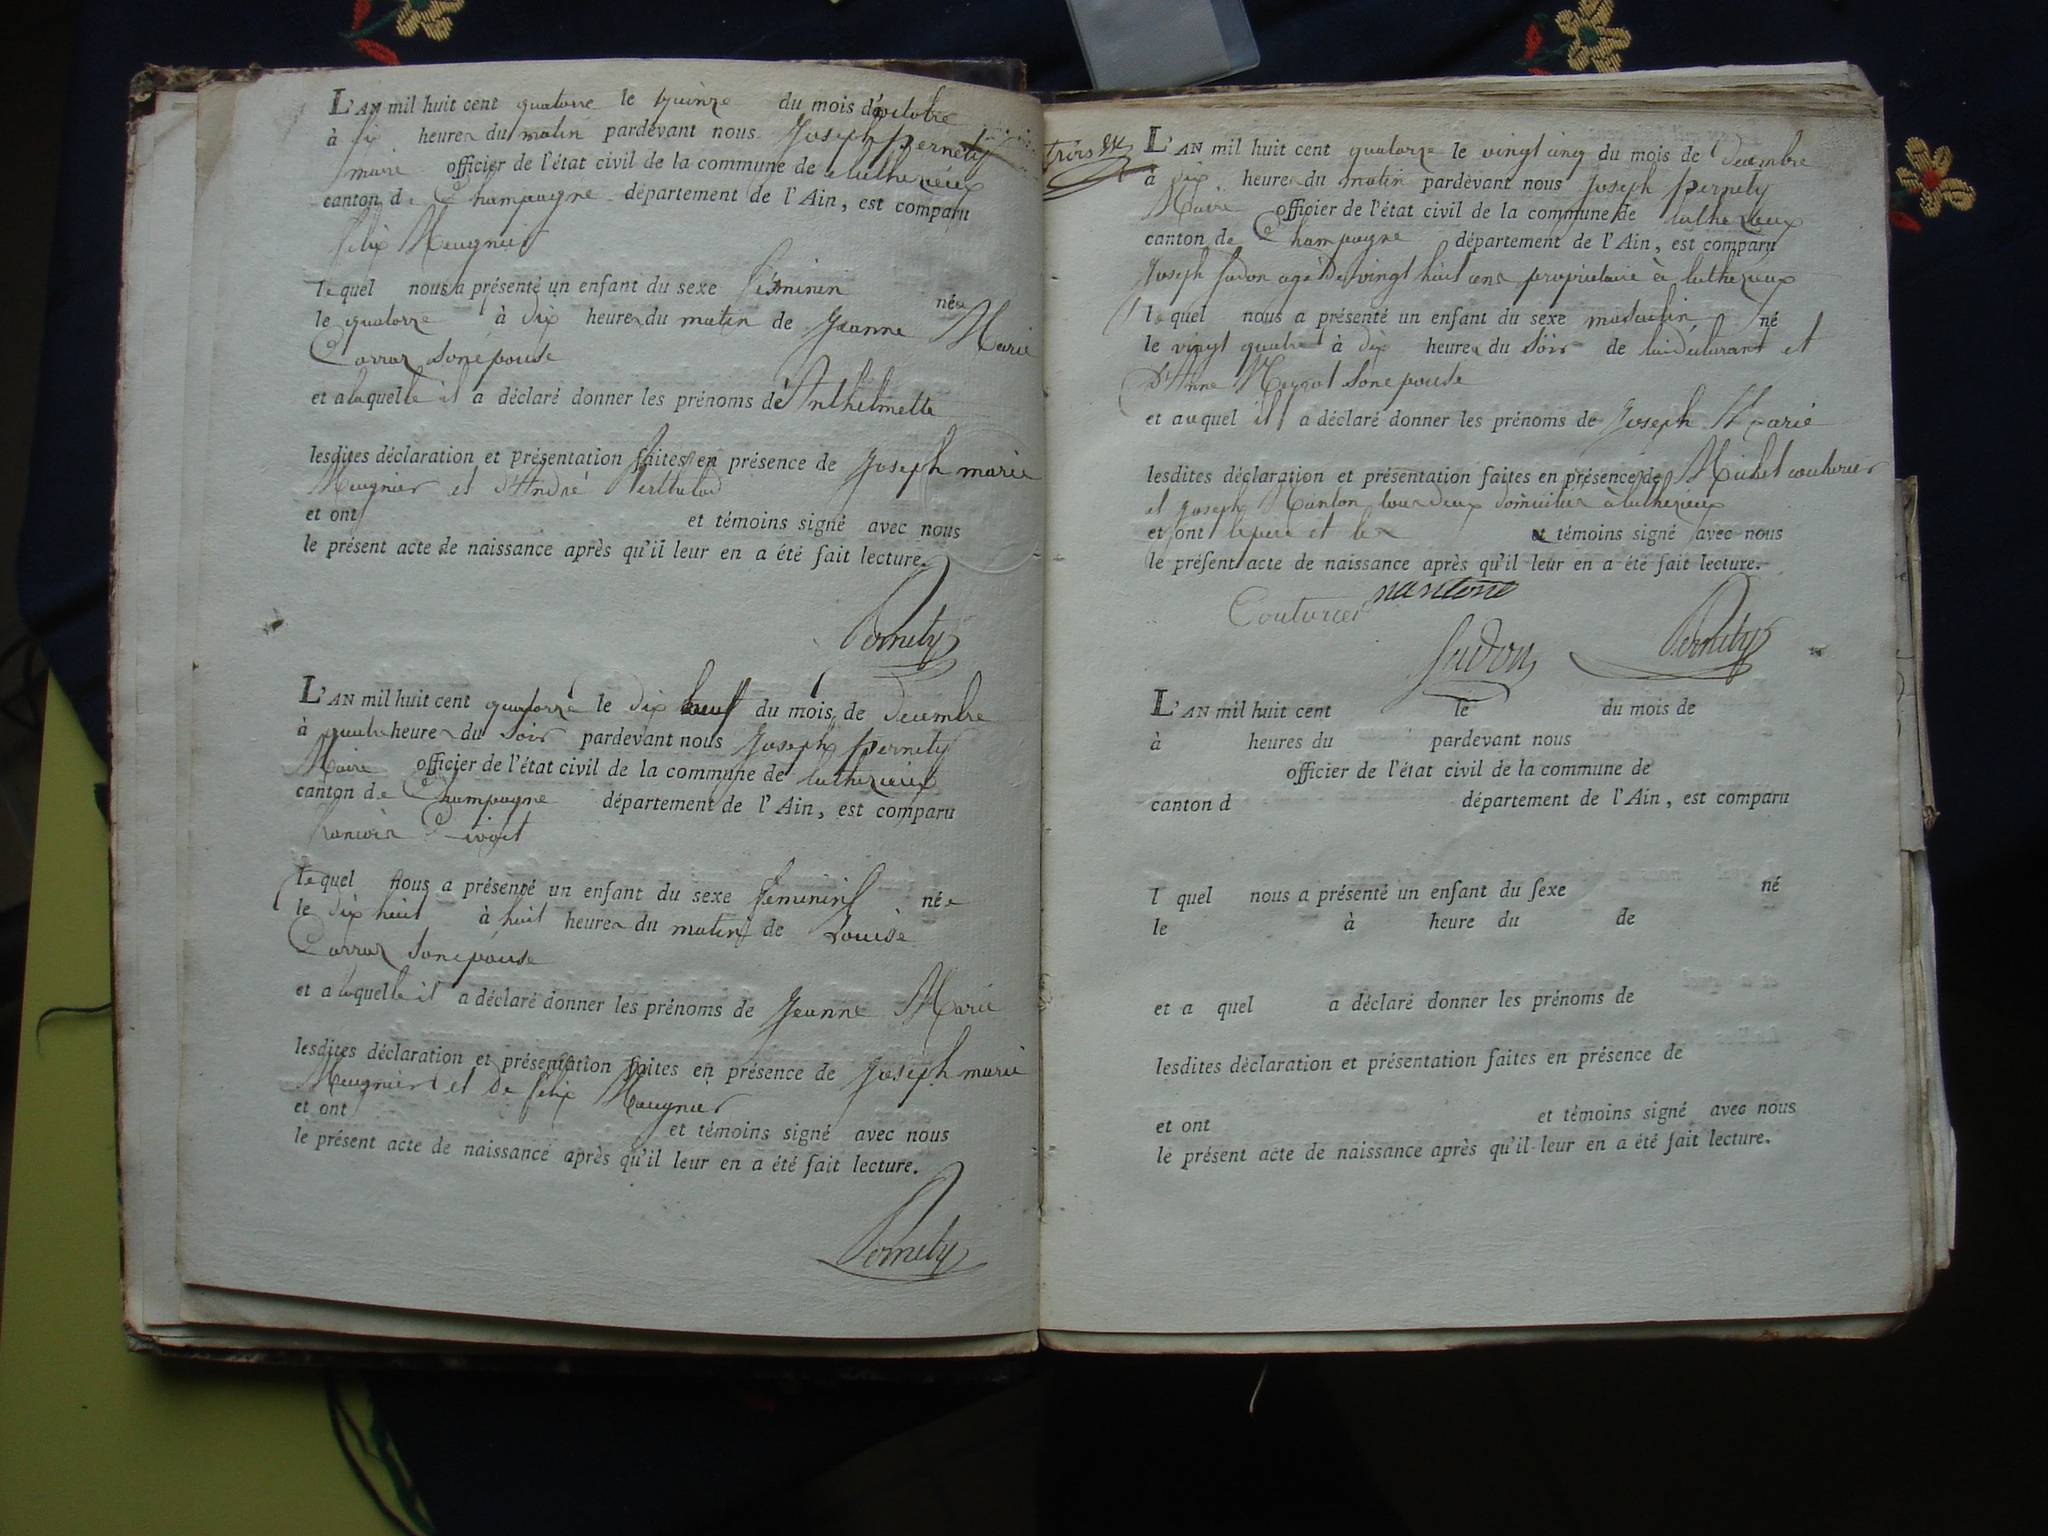 L'AN mil huit cent quatorze le quinze du mois d'octobre
à six heures du matin pardevant nous Joseph pernety
maire officier de l'état civil de la commune de luthezieux
canton de Champagne département de l'Ain, est comparu
felix Meugnier
lequel nous a présenté un enfant du sexe féminin née
le quatorze à dix heures du matin de Jeanne Marie
Carraz son epouse
et a laquelle il a déclaré donner les prénoms de Anthelmette
lesdites déclaration et présentation faites en présence de Joseph marie
Meugnier et d'André Berthelod
et ont et témoins signé avec nous
le présent acte de naissance après qu'il leur en a été fait lecture.
Pernety
L'AN mil huit cent quatorze le dix neuf du mois de decembre
à quatre heures du soir pardevant nous Joseph pernety
Maire officier de l'état civil de la commune de luthezieux
canton de Champagne département de l'Ain, est comparu
francois
lequel nous a présenté un enfant du sexe feminin née
le dix huit à huit heures du matin de Louise
Carraz son epouse
et a laquelle il a déclaré donner les prénoms de Jeanne Marie
lesdites déclaration et présentation faites en présence de Joseph marie
Meugnier et de felix Meugnier
et ont et témoins signé avec nous
le présent acte de naissance après qu'il leur en a été fait lecture.
Pernety
trois
L'AN mil huit cent quatorze le vingt cinq du mois de decembre
à dix heures du matin pardevant nous Joseph pernety
Maire officier de l'état civil de la commune de luthezieux
canton de Champagne département de l'Ain, est comparu
Joseph Judon agé de vingt huit ans propriétaire à luthezieux
lequel nous a présenté un enfant du sexe masculin né
le vingt quatre à dix heures du soir de lui déclarant et
d'Anne son epouse
et auquel il a déclaré donner les prénoms de Joseph Marie
lesdites déclaration et présentation faites en présence de Michel couturier
et Joseph Nanton tous deux domiciliés à luthezieux
et ont le pere et les témoins signé avec nous
le présent acte de naissance après qu'il leur en a été fait lecture.
Couturier nantone
Judon Pernety
L'AN mil huit cent le du mois de
à heures du pardevant nous
officier de l'état civil de la commune de
canton d département de l'Ain, est comparu
l quel nous a présenté un enfant du sexe né
le à heure du de
et a quel a déclaré donner les prénoms de
lesdites déclaration et présentation faites en présence de
et ont et témoins signé avec nous
le présent acte de naissance après qu'il leur en a été fait lecture.